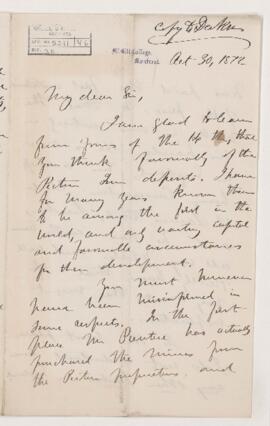 Copy to
McGill College,
Montreal.
Oct 30, 1872
My dear Sir,
I am glad to learn
from yours of the 14th, that
you think favourably of the
Pictou Iron deposits. I have
for many years known them
to be among the first in the
world, and only wanting capital
and favourable circumstances
for their development.
You must however
have been misinformed in
some respects. In the first
place Mr has actually
purchased the mines from
the Pictou proprietors, and